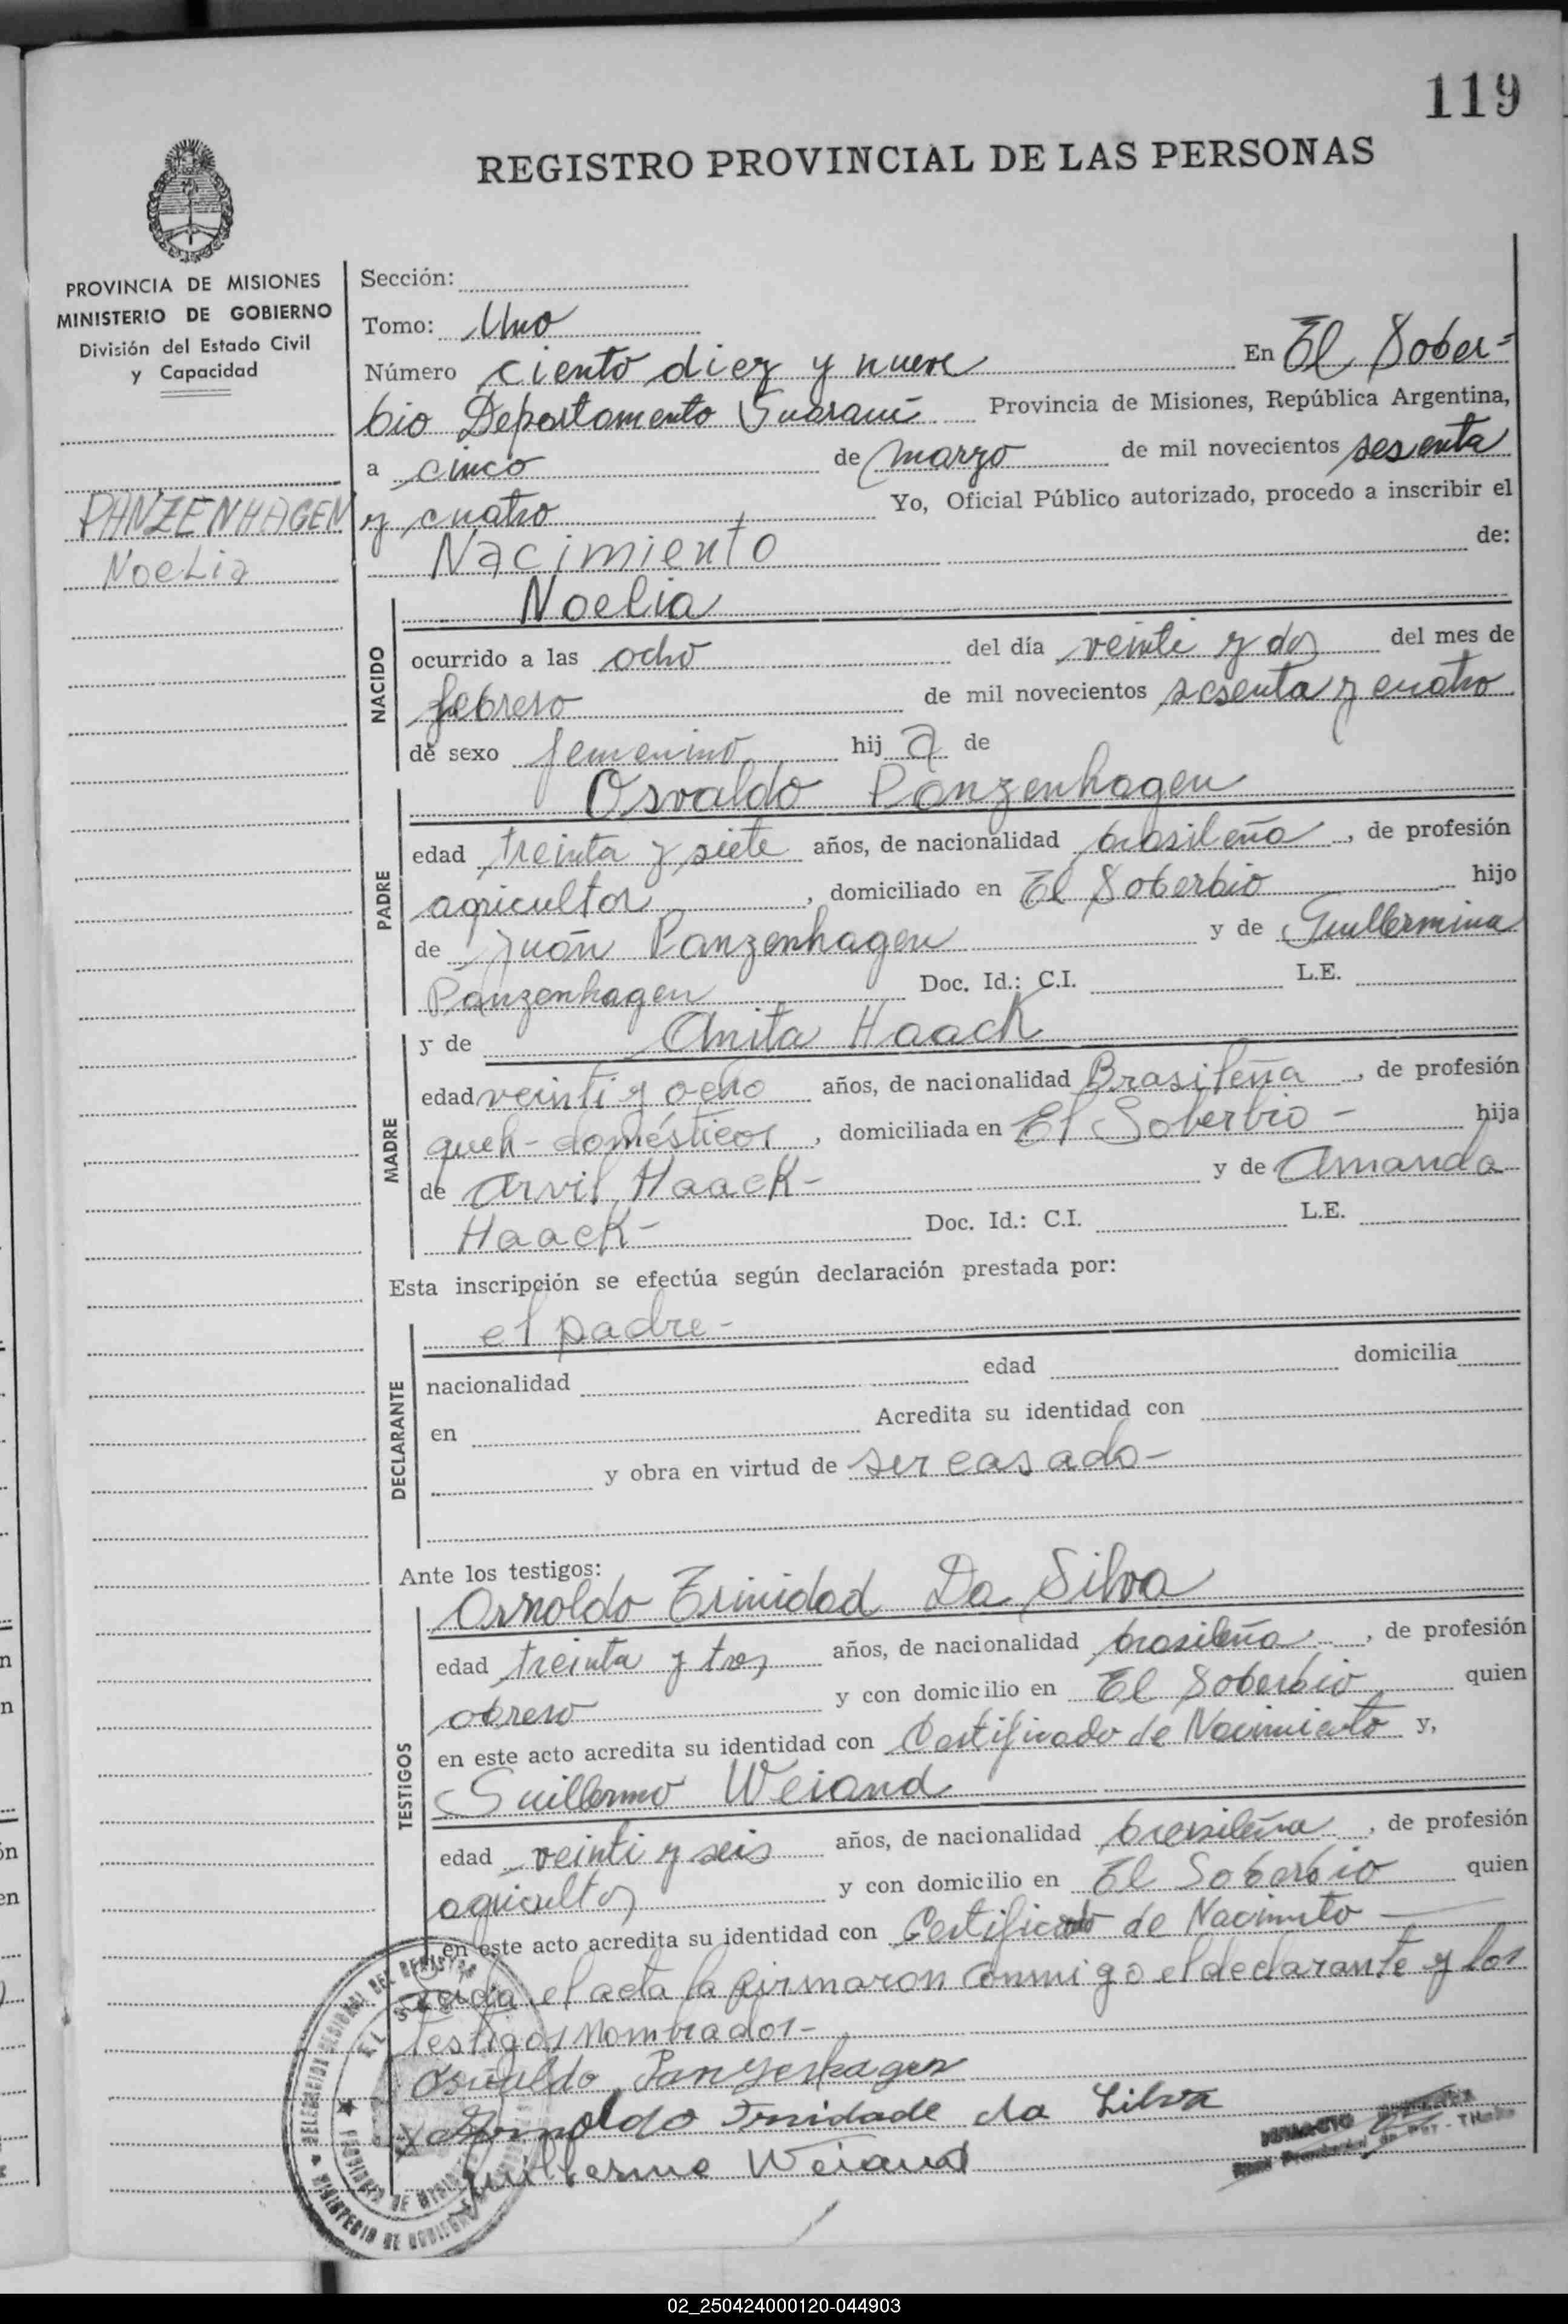 119
REGISTRO PROVINCIAL DE LAS PERSONAS
PROVINCIA DE MISIONES
MINISTERIO DE GOBIERNO
División del Estado Civil
y Capacidad
PANZENHAGEN
Noelia
Sección:
Tomo: Uno
Número ciento diez y nueve En El Sober=
bio Departamento Guaraní Provincia de Misiones, República Argentina,
a cinco de marzo de mil novecientos sesenta
y cuatro Yo, Oficial Público autorizado, procedo a inscribir el
Nacimiento de:
NACIDO
Noelia
ocurrido a las ocho del día veinti y dos del mes de
febrero de mil novecientos sesenta y cuatro
de sexo femenino hij a de
PADRE
Osvaldo Panzenhagen
edad treinta y siete años, de nacionalidad brasileña, de profesión
agricultor, domiciliado en El Soberbio hijo
de Juan Panzenhagen y de Guillermina
Panzenhagen Doc. Id.: C.I. L.E.
MADRE
y de Anita Haack
edad veinti y ocho años, de nacionalidad Brasileña, de profesión
queh-domésticos, domiciliada en El Soberbio - hija
de Arvil Haack- y de Amanda
Haack- Doc. Id.: C.I. L.E.
Esta inscripción se efectúa según declaración prestada por:
DECLARANTE
el padre-
nacionalidad edad domicilia
en Acredita su identidad con
y obra en virtud de ser casado-
Ante los testigos:
TESTIGOS
Arnoldo Trinidad Da Silva
edad treinta y tres años, de nacionalidad brasileña, de profesión
obrero y con domicilio en El Soberbio quien
en este acto acredita su identidad con Certificado de Nacimiento y,
Guillermo Weiand
edad veinti y seis años, de nacionalidad brasileña, de profesión
agricultor y con domicilio en El Soberbio quien
en este acto acredita su identidad con Certificado de Nacimiento
Leida el acta la firmaron conmigo el declarante y los
testigos nombrados-
Osvaldo Panzenhagen
Arnoldo Trindade da Silva
Guilherme Weiand
02_250424000120-044903